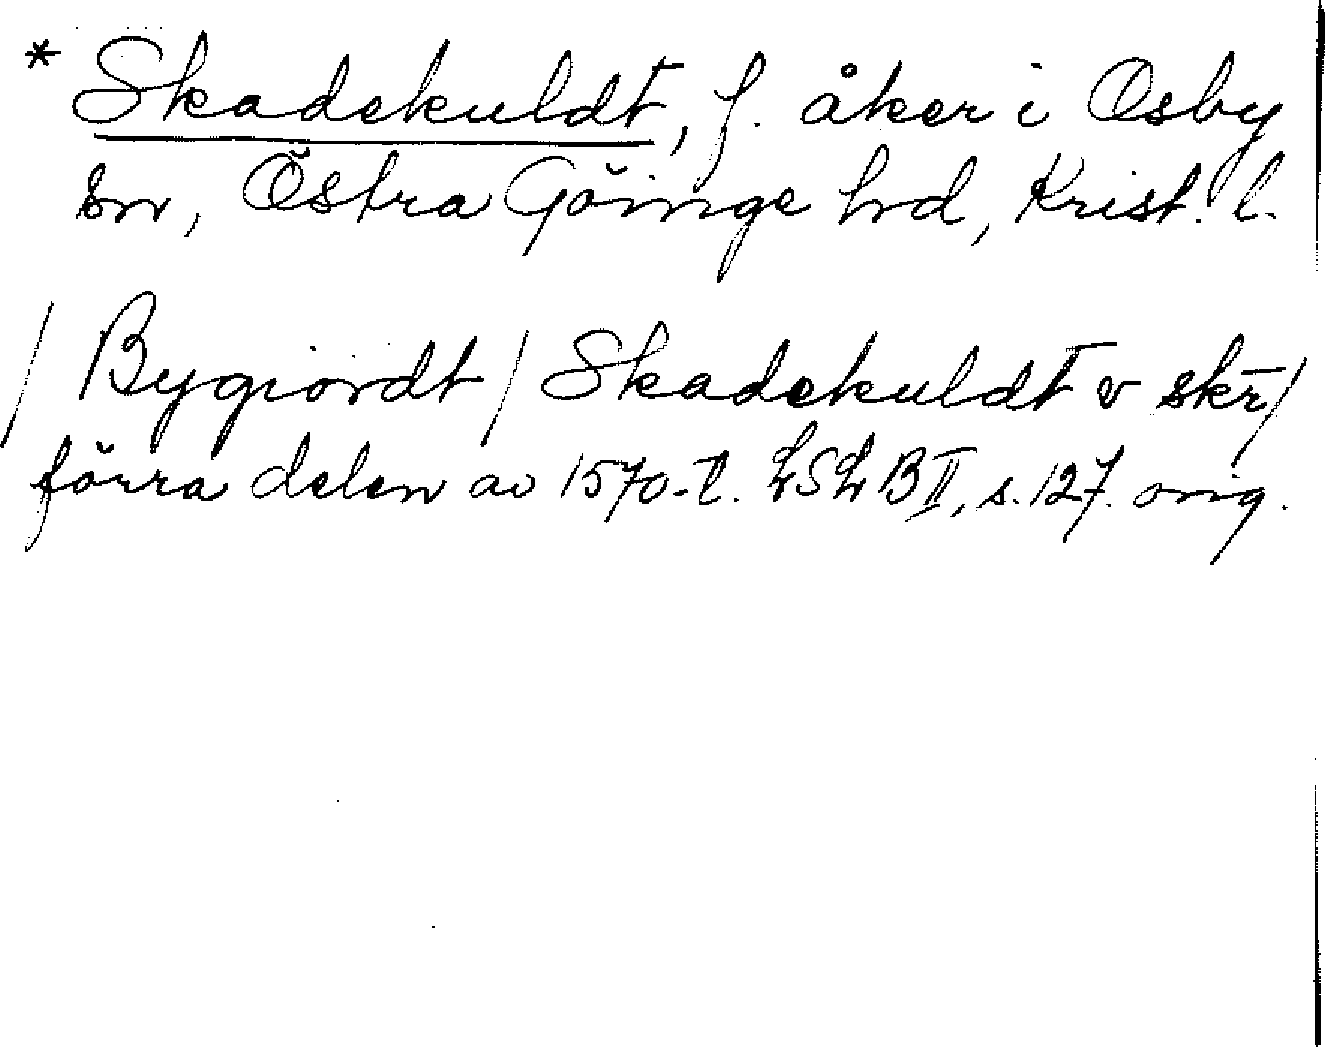 * Skadekuldt, f. åker i Osby
sn, Östra Göinge hd, Krist. l.
/ Bygiordt / Skadekuldt v skr /
förra delen av 1570-t. LSLB II, s. 127. orig.